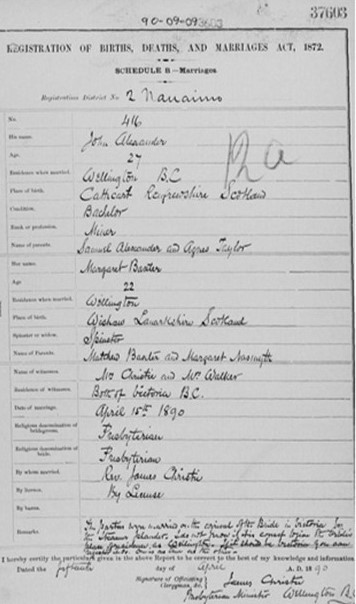 90-09-093603
37603
REGISTRATION OF BIRTHS, DEATHS, AND MARRIAGES ACT, 1872.
SCHEDULE B.—Marriages.
Registration District No. 2 Nanaimo
No. 416
His name. John Alexander
Age. 27
Residence when married. Wellington B.C
Place of birth. Cathcart Renfrewshire Scotland
Condition. Bachelor
Rank or profession. Miner
Name of parents. Samuel Alexander and Agnes Taylor
Her name. Margaret Baxter
Age 22
Residence when married. Wellington
Place of birth. Wishaw Lanarkshire Scotland
Spinster or widow. Spinster
Name of Parents. Matthew Baxter and Margaret
Name of witnesses. Mrs Christie and Mrs Walker
Residence of witnesses. Both of Victoria B.C.
Date of marriage. April 15th 1890
Religious denomination of bridegroom. Presbyterian
Religious denomination of bride. Presbyterian
By whom married. Rev. James Christie
By licence. By License
By banns.
Remarks. The Parties were married on the arrival of the Bride in Victoria by the Steamer
I hereby certify the particulars given in the above Report to be correct to the best of my knowledge and information
Dated the fifteenth day of April A.D. 1890
Signature of Officiating Clergyman, &c. James Christie
Presbyterian Minister Wellington B.